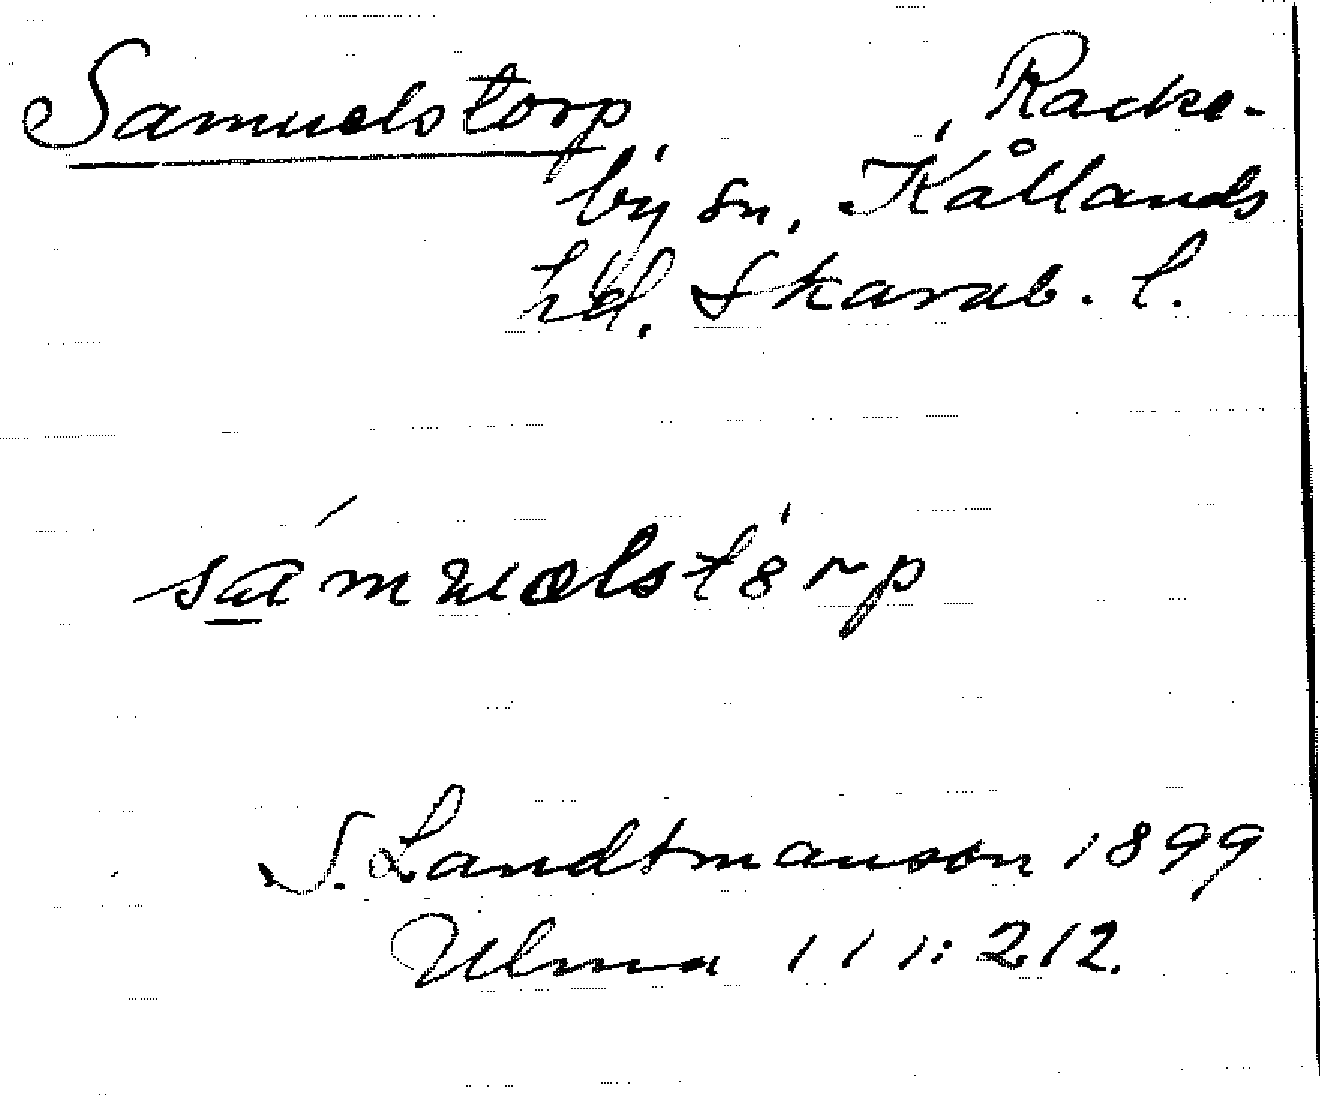 Samuelstorp, Racke-
by sn, Kållands
hd. Skarab. l.
sámuelstörp
S. Landtmanson 1899
Ulma 111:212.